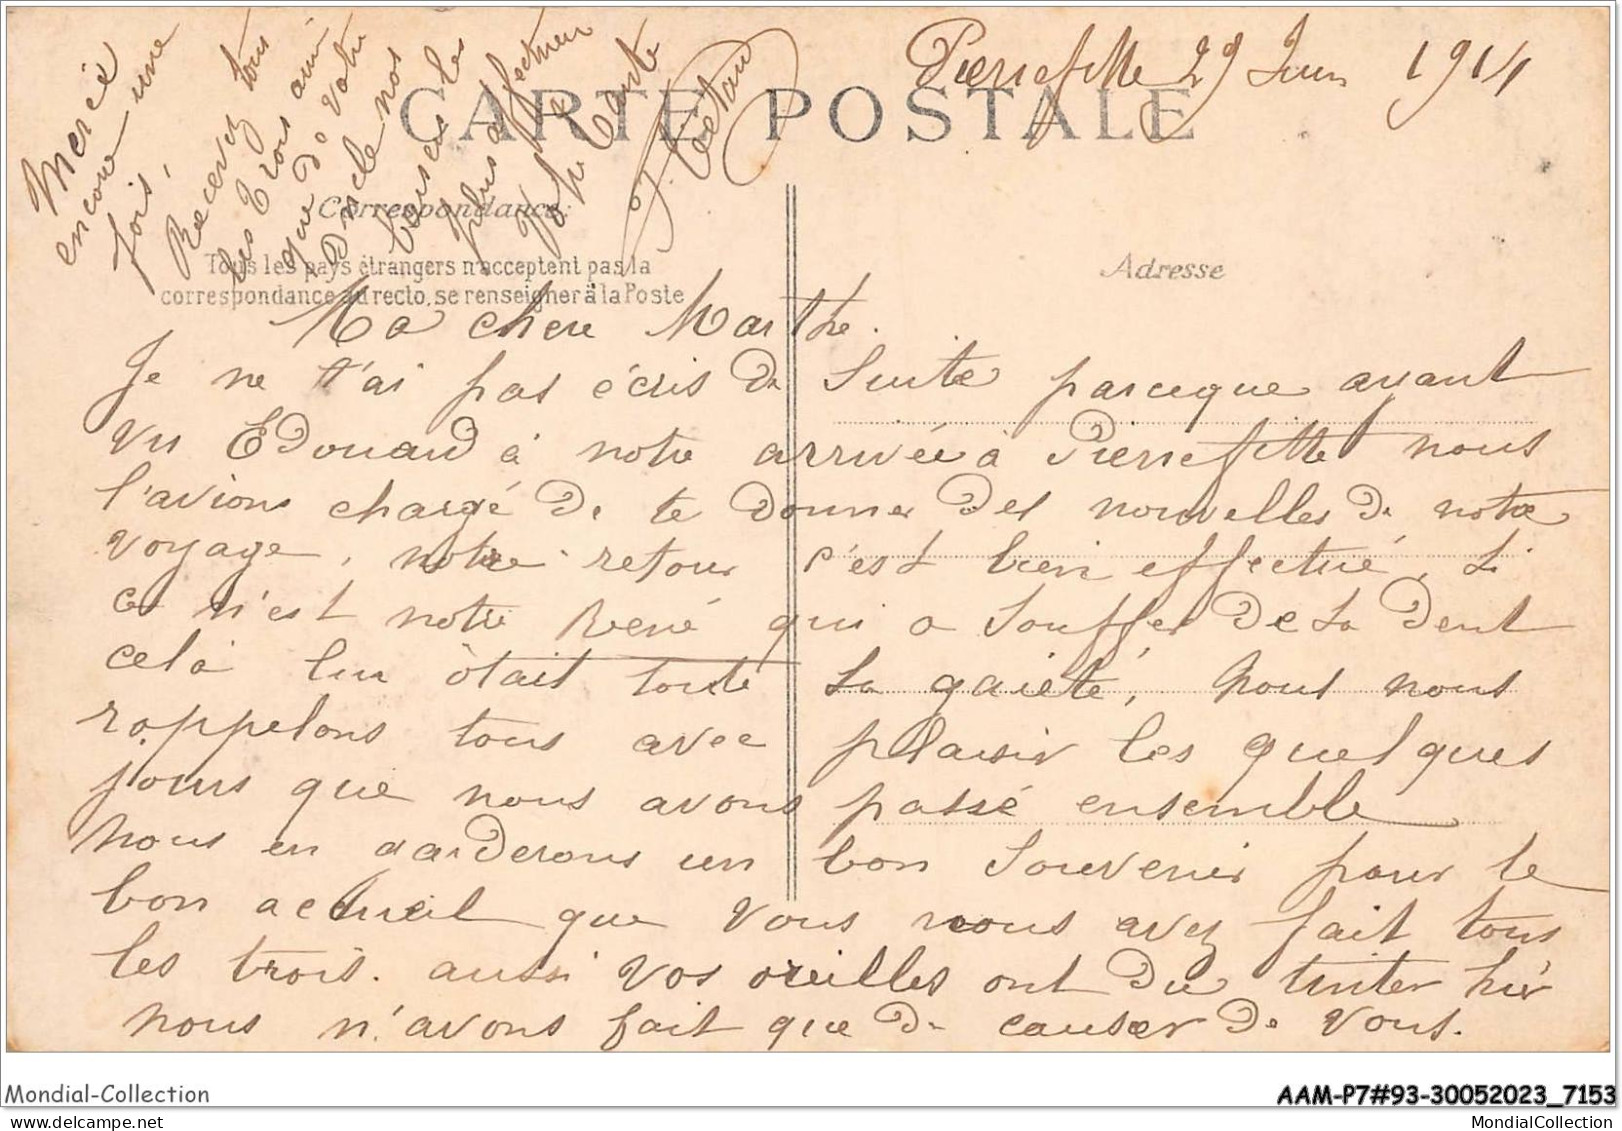 Pierrefitte 29 Juin 1914
CARTE POSTALE
Correspondance.
Tous les pays étrangers n'acceptent pas la
correspondance au recto, se renseigner à la Poste
Adresse
Ma chere Marthe.
Je ne t'ai pas écris de suite parceque ayant
vu Edouard à notre arrivée à Pierrefitte nous
l'avions chargé de te donner des nouvelles de notre
voyage, notre retour c'est bien effectué, si
ce n'est notre René qui a souffer de la dent
celà lui ôtait toute la gaieté, nous nous
rappelons tous avec plaisir les quelques
jours que nous avons passé ensemble
nous en garderons un bon souvenir pour le
bon accueil que vous nous avez fait tous
les trois. aussi vos oreilles ont du tinter hièr
nous n'avons fait que de causer de vous.
Mercie
encore une
fois,
Recevez tous
les trois ainsi
que de votre
oncle nos
baisers les
plus affectueux
Joph. Carte
Mondial-Collection
AAM-P7#93-30052023_7153
MondialCollection